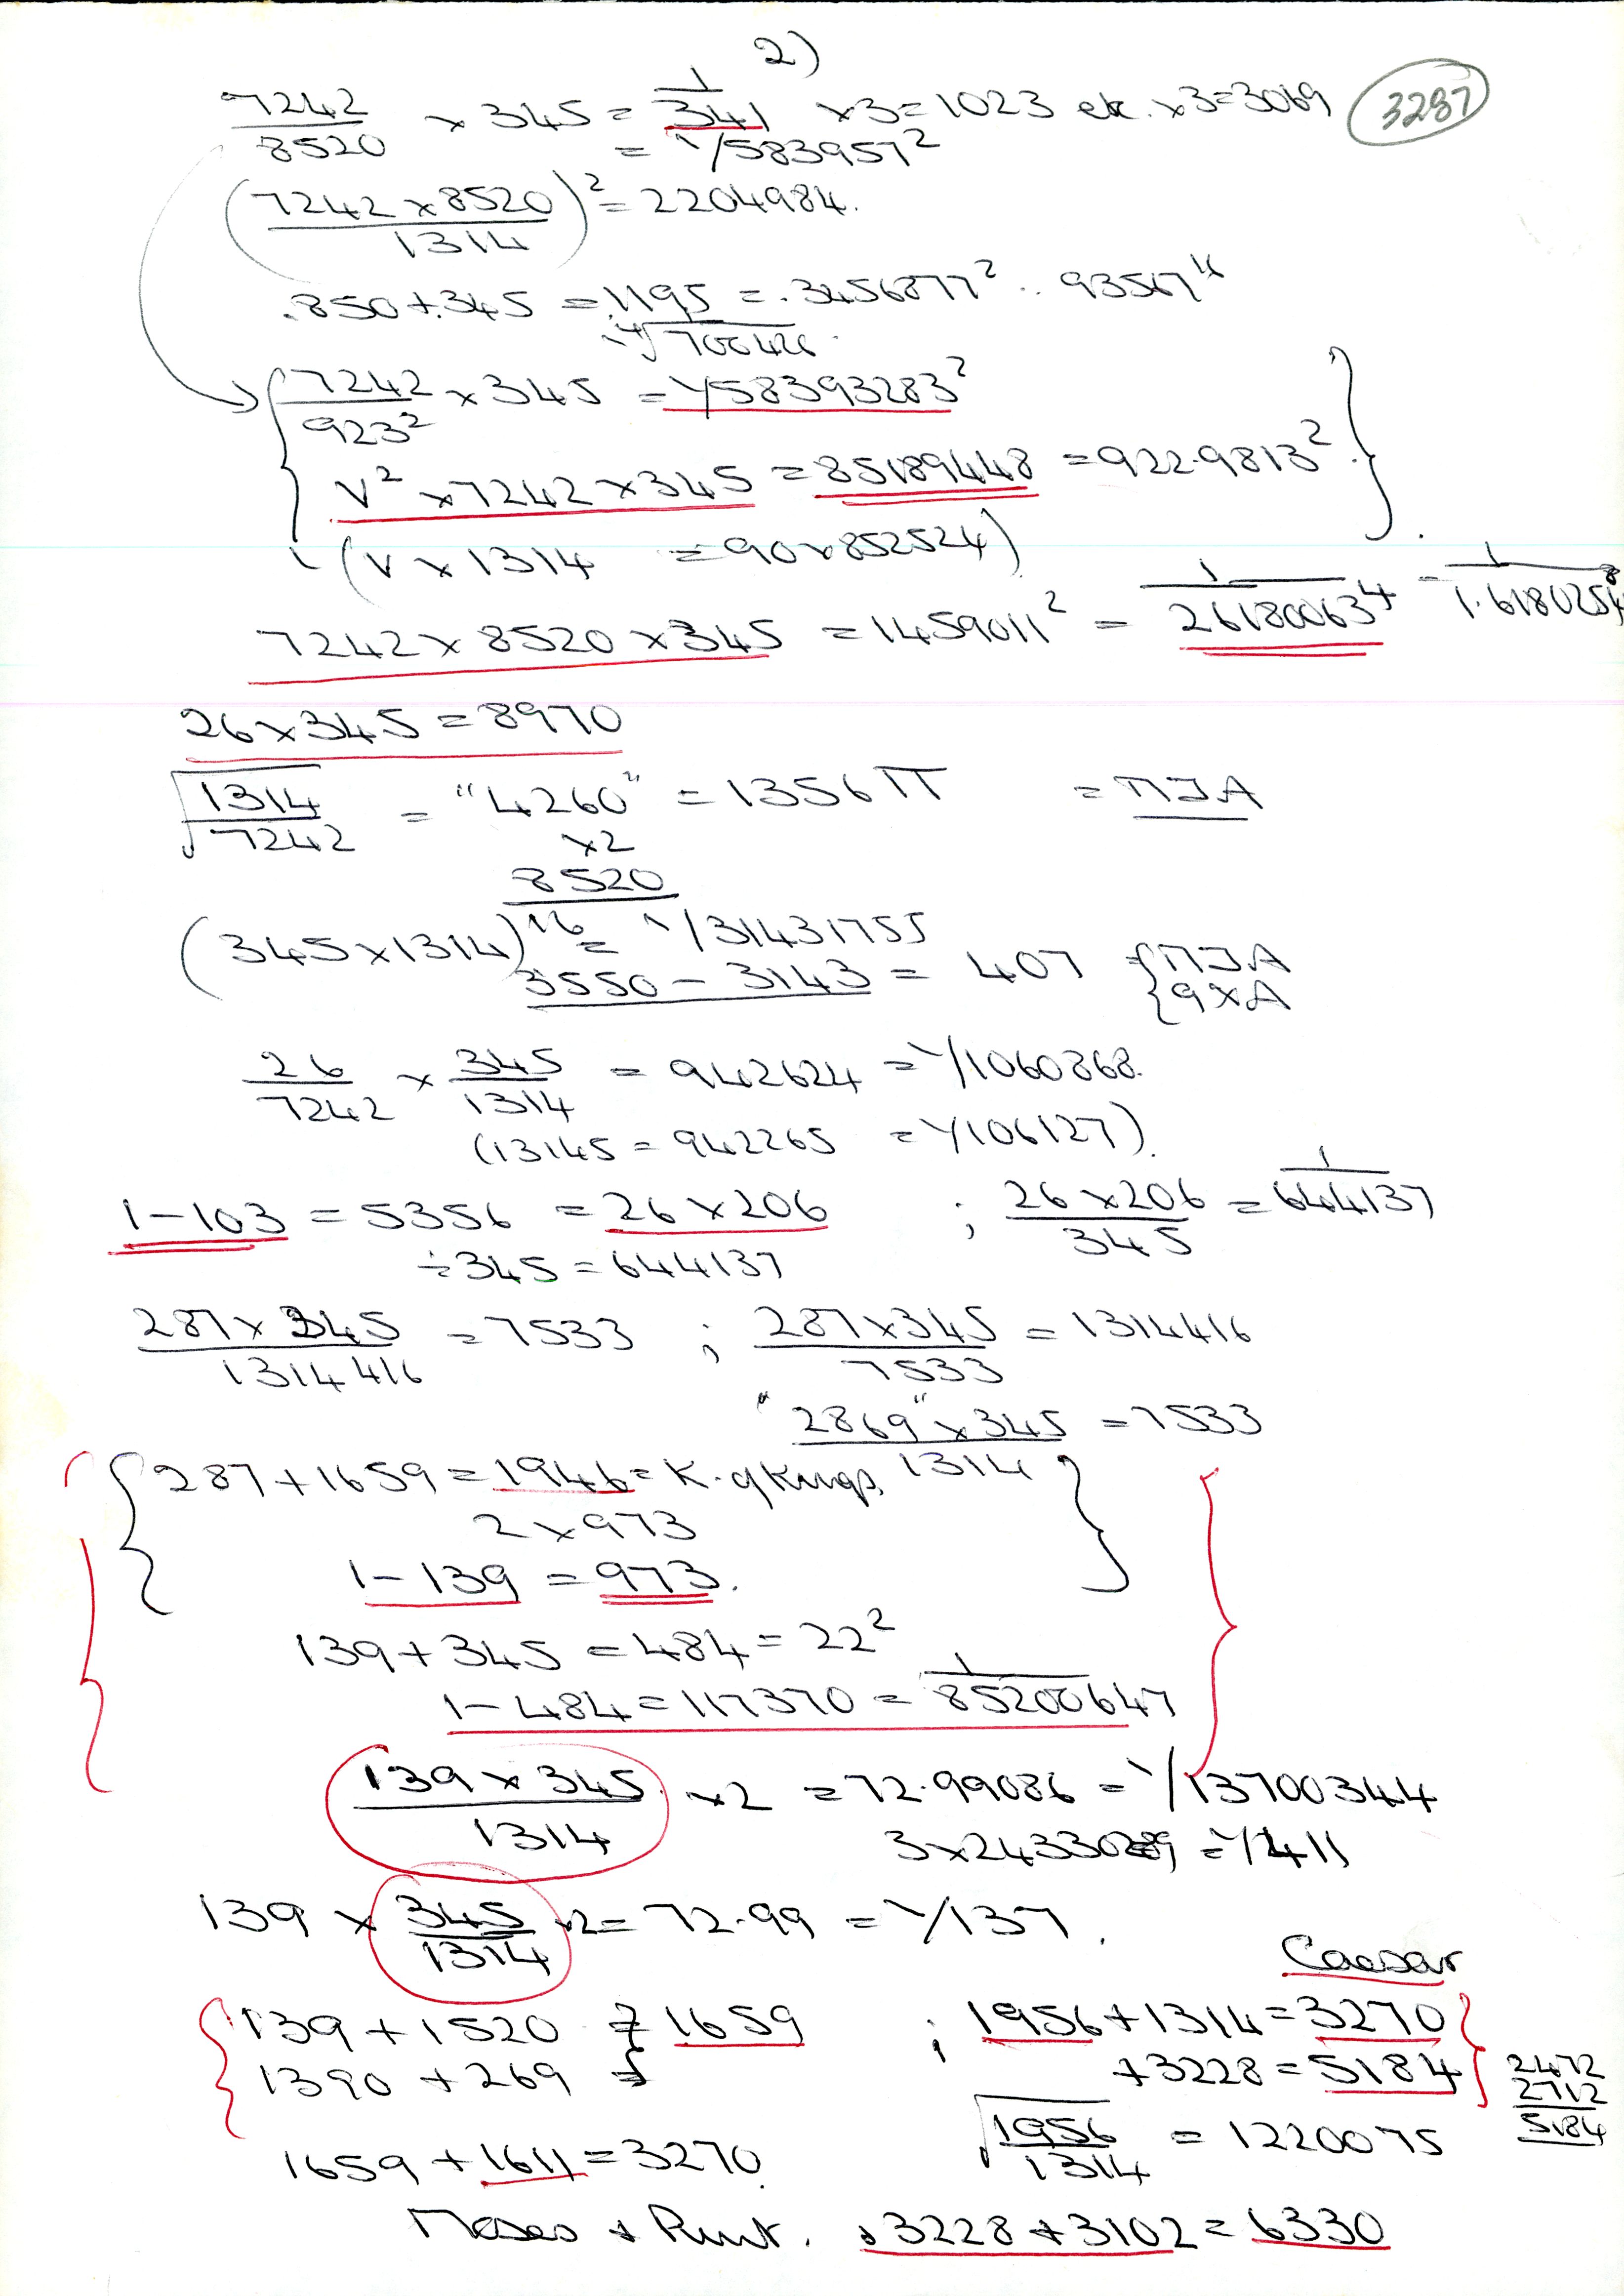 2)
7242/8520 × 345 = 1/341 ×3=1023 etc. ×3=3069 3287
= 1/583957²
(7242×8520/1314)² = 2204984.
.850+.345 = .1195 = .3456877² .. 93567¹⁶
7242/923² × 345 = 1/58393283²
V² × 7242 × 345 = 85189448 = 922.9813².
(V × 1314 = 90×852524)
7242 × 8520 × 345 = 1459011² = 1/26180063⁴ = 1/1.6180254⁸
26×345 = 8970
√1314/7242 = "4260" = 1356 π = ΠJA
×2
8520
(345×1314)¹⁶ = 1/31431755
3550 - 3143 = 407 = {ΠJA
{9XA
26/7242 × 345/1314 = 942624 = 1/1060868.
(13145 = 942265 = 1/106127).
1-103 = 5356 = 26×206 ; 26×206/345 = 1/644137
÷345 = 644137
287×345/1314416 = 7533 ; 287×345/7533 = 1314416
"2869"×345/1314 = 7533
287+1659 = 1946 = K. of Kings.
2×973
1-139 = 973.
139+345 = 484 = 22²
1-484 = 117370 = 1/85200647
139×345/1314 ×2 = 72.99086 = 1/13700344
3×2433029 = 1/411
139 × 345/1314 ×2 = 72.99 = 1/137.
Caesar
139 + 1520 = 1659 ; 1956+1314=3270
1390 + 269 = +3228 = 5184
2472
2712
5184
1659 + 1611 = 3270. √1956/1314 = 1220075
Moses + . +3228+3102 = 6330